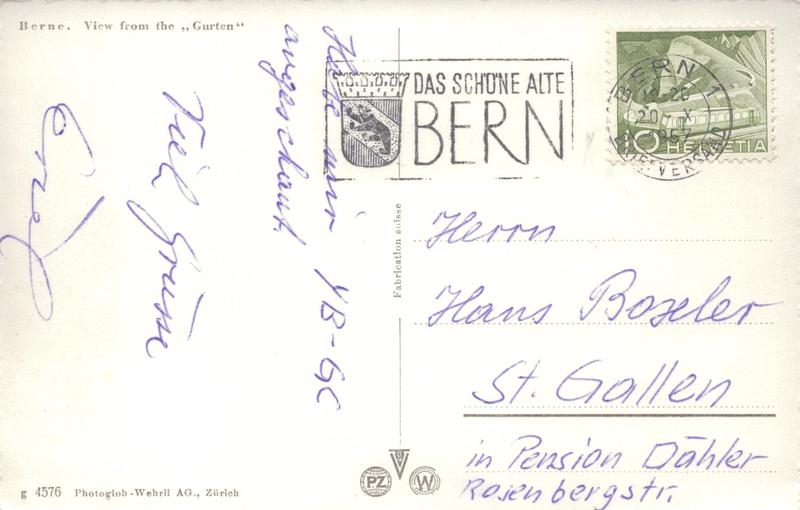 Berne. View from the „Gurten“
Habe mir YB-GC
angeschaut.
Viel Grüsse
DAS SCHÖNE ALTE
BERN
BERN 1
20. X
1957
BRIEFVERSAND
10 HELVETIA
Fabrication suisse
Herrn
Hans Boxler
St. Gallen
in Pension Dähler
Rosenbergstr.
PZ
W
g 4576 Photoglob-Wehrli AG., Zürich